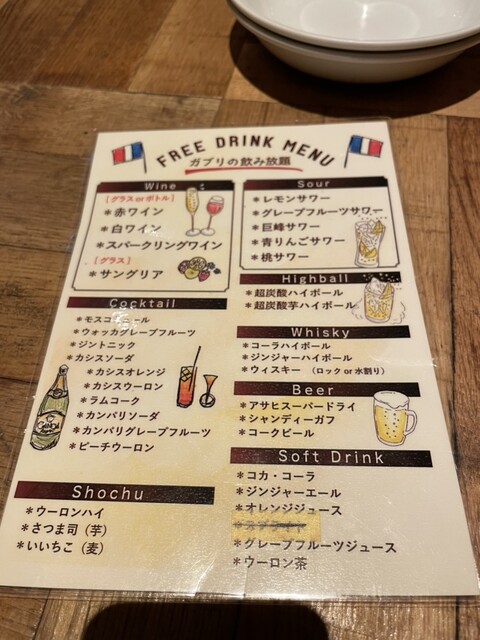 FREE DRINK MENU
ガブリの飲み放題
Wine
[グラス or ボトル]
＊赤ワイン
＊白ワイン
＊スパークリングワイン
[グラス]
＊サングリア
Cocktail
＊モスコミュール
＊ウォッカグレープフルーツ
＊ジントニック
＊カシスソーダ
＊カシスオレンジ
＊カシスウーロン
＊ラムコーク
＊カンパリソーダ
＊カンパリグレープフルーツ
＊ピーチウーロン
Shochu
＊ウーロンハイ
＊さつま司（芋）
＊いいちこ（麦）
Sour
＊レモンサワー
＊グレープフルーツサワー
＊巨峰サワー
＊青りんごサワー
＊桃サワー
Highball
＊超炭酸ハイボール
＊超炭酸芋ハイボール
Whisky
＊コーラハイボール
＊ジンジャーハイボール
＊ウィスキー （ロック or 水割り）
Beer
＊アサヒスーパードライ
＊シャンディーガフ
＊コークビール
Soft Drink
＊コカ・コーラ
＊ジンジャーエール
＊オレンジジュース
＊グレープフルーツジュース
＊ウーロン茶